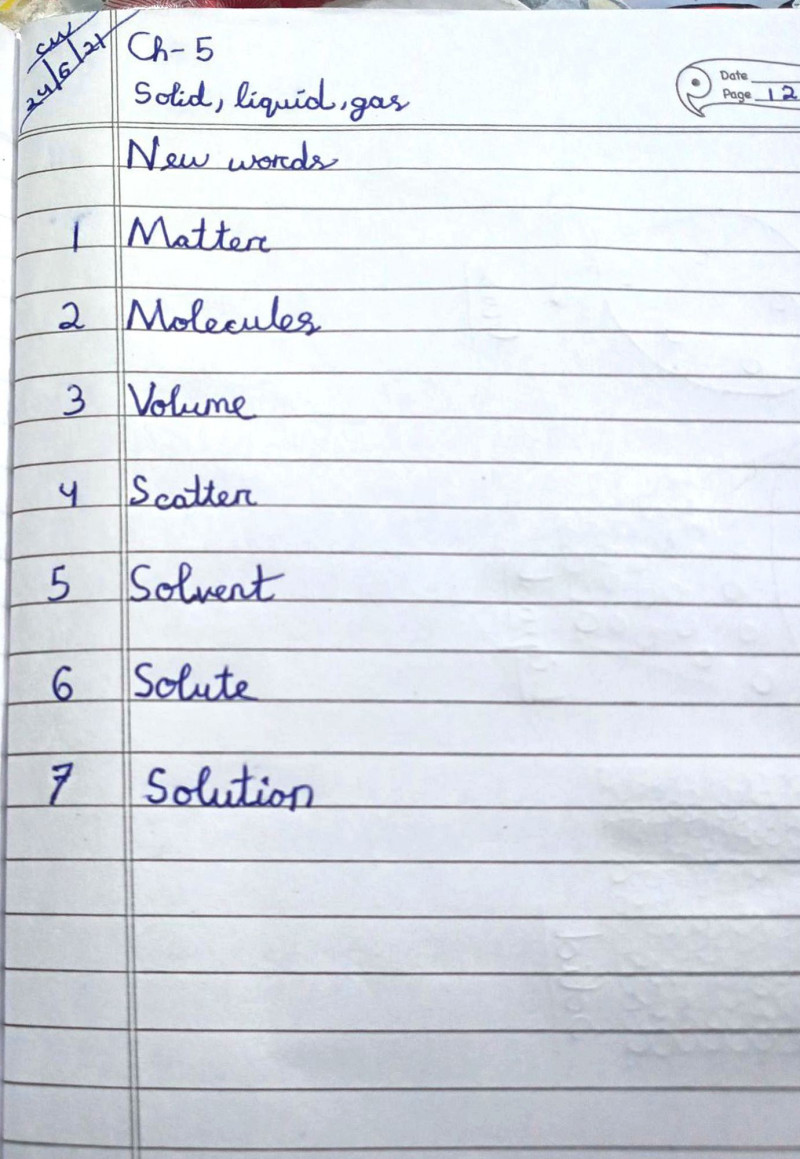 CW
24/6/21
Ch-5
Solid, liquid, gas
Date
Page 12
New words
1 Matter
2 Molecules
3 Volume
4 Scatter
5 Solvent
6 Solute
7 Solution